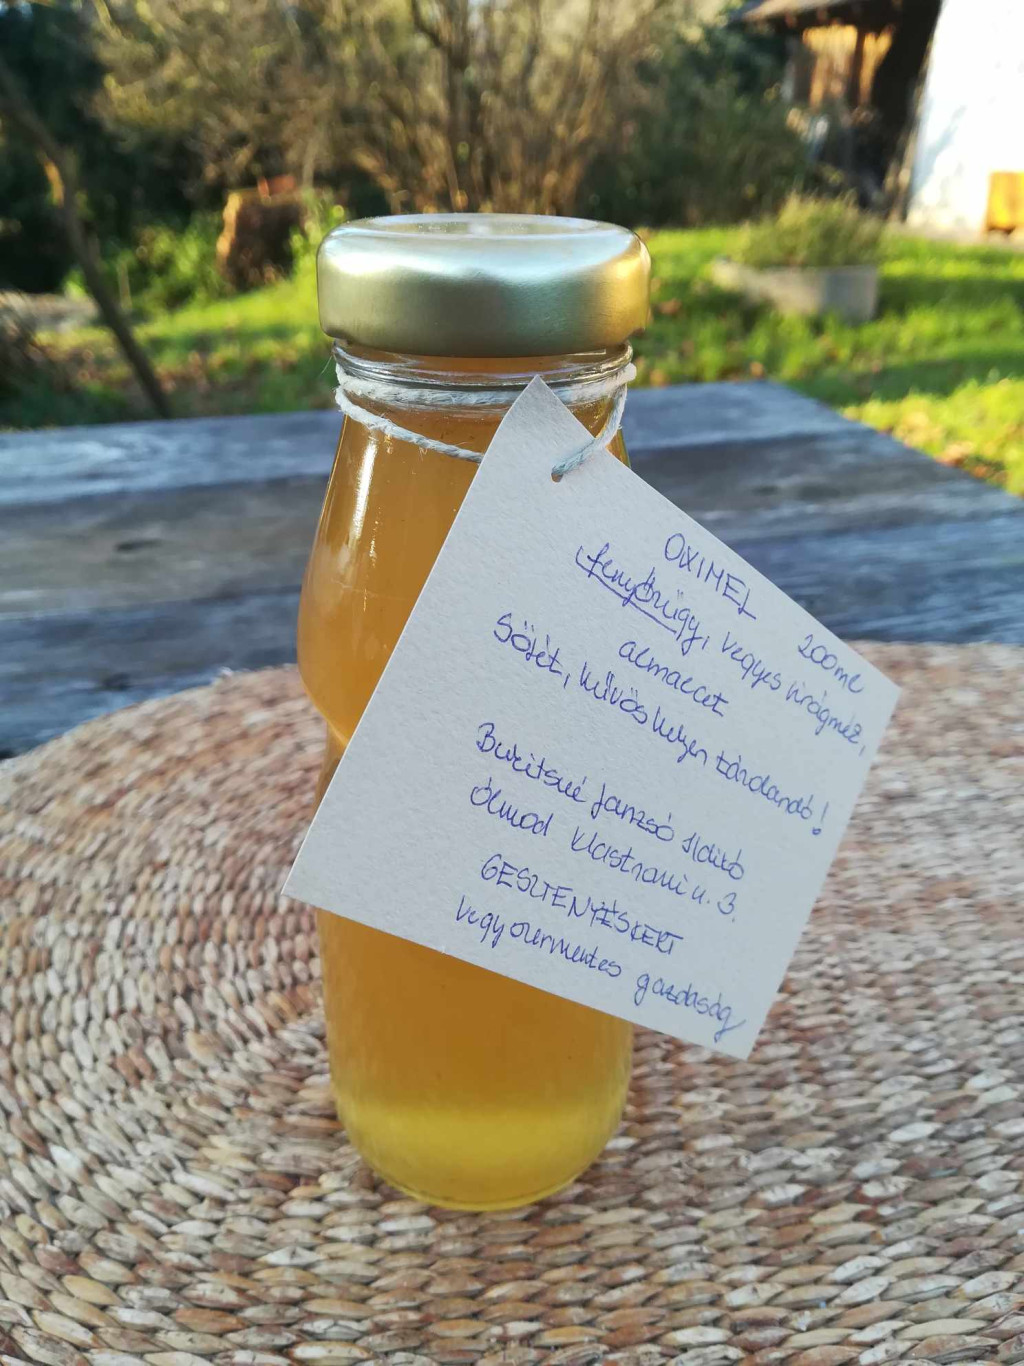 OXIMEL 200ml
fenyőrügy, vegyes virágméz,
almaecet
Sötét, hűvös helyen tárolandó!
Ildikó
Ólmod Klastromi u. 3.
GESZTENYÉSKERT
vegyszermentes gazdaság